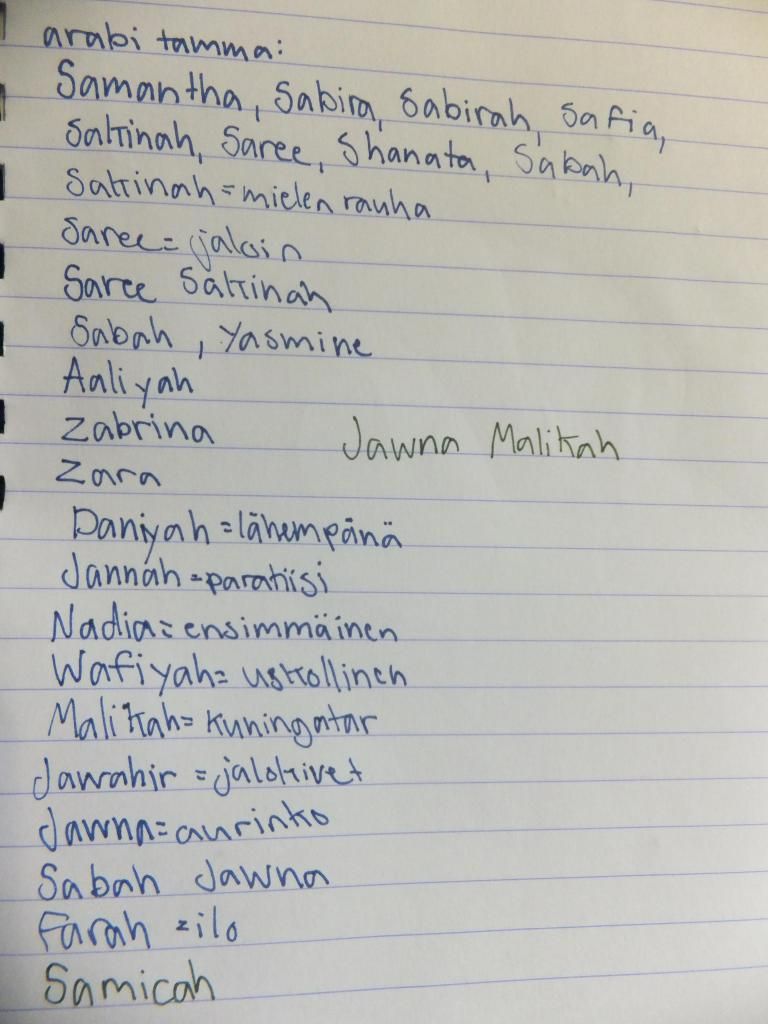 arabi tamma:
Samantha, Sabira, Sabirah, Safia,
Sakinah, Saree, Shanata, Sabah,
Sakinah = mielen rauha
Saree = jaloin
Saree Sakinah
Sabah, Yasmine
Aaliyah
Zabrina
Jawna Malikah
Zara
Daniyah = lähempänä
Jannah = paratiisi
Nadia = ensimmäinen
Wafiyah = uskollinen
Malikah = kuningatar
Jawahir = jalokivet
Jawna = aurinko
Sabah Jawna
Farah = ilo
Samicah